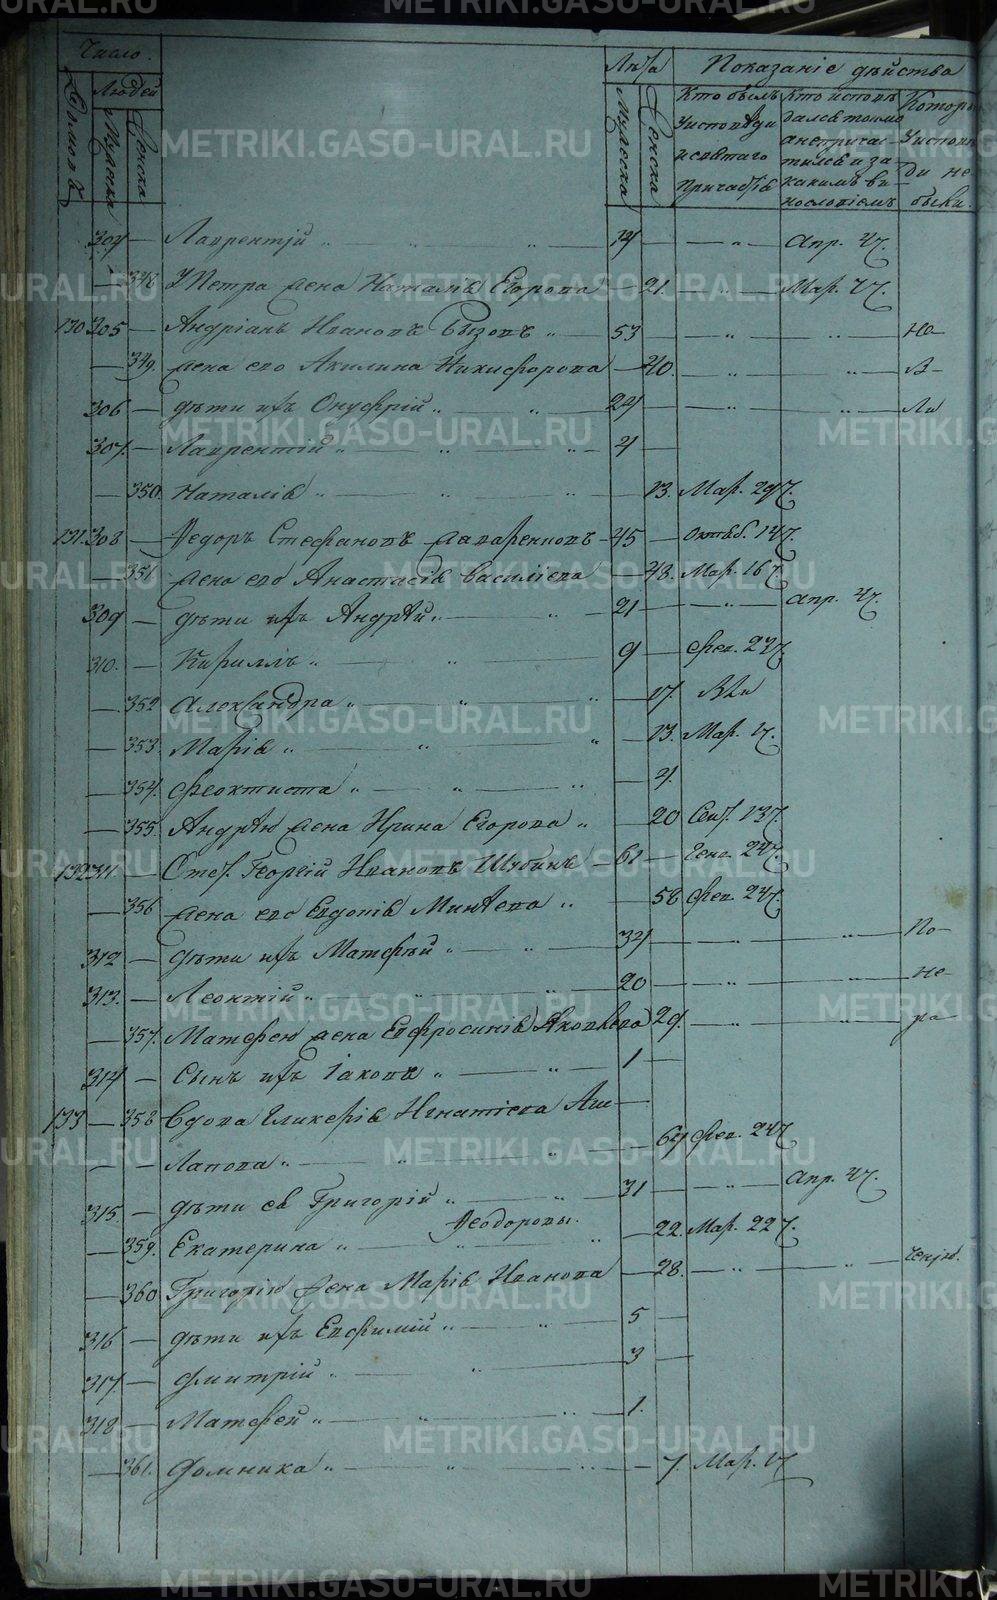 Число.
Лѣта
Показаніе дѣйства
Домовъ
Людей
Мужеска
Женска
Мужеска
Женска
Кто былъ у исповѣди и святаго причастія
Кто исповѣдался токмо а не причастился и за какимъ винословіемъ
Которые у исповѣди не были.
304 — Лаврентій „ — „ — „ — 14 — — „ — Апр. 4.
— 348 Петра жена Наталія Егорова — 21 — „ — Мар. 4.
130 305 — Андріанъ Ивановъ Бызовъ „ — 53 — — „ — „ — Не—
— 349. жена его Акилина Никифорова — 40. — „ — „ — я—
306 — дѣти ихъ Онуфрій „ — „ — 24 — — „ — „ — ли
307. — Лаврентій „ — „ — „ — 4 —
— 350. Наталія „ — „ — „ — 13. Мар. 29.
131. 308 — Ѳедоръ Стефановъ — 45 — Октяб. 14.
— 351 жена его Анастасія Василіева — 48. Мар. 16.
309 — дѣти ихъ Андрѣй „ — „ — 21 — — „ — Апр. 4.
310. — Кириллъ „ — „ — 9 — Фев. 22.
— 352 Александра „ — „ — „ — 17.
— 353. Марія „ — „ — „ — 13. Мар. 1.
— 354. Феоктиста „ — „ — „ — 4.
— 355. Андрѣя жена Ирина Егорова „ — 20 Сент. 13.
132 311 — Отст. Георгій Ивановъ — 61 — Генв. 24.
— 356 жена его Евдокія Минѣева „ — 58 Фев. 24.
312 — дѣти ихъ Матфѣй „ — „ — 34 — — „ — „ — По—
313. — Леонтій „ — „ — „ — 20 — — „ — „ — не—
— 357. Матфею жена Евфросинія Яковлева — 29. — „ — „ — ра
314 — Сынъ ихъ Іаковъ „ — „ — 1 —
133 — 358 Вдова Гликерія Игнатіева Ага—
— — Лапова „ — „ — „ — 64 Фев. 24
315. — дѣти ея Григорій „ — „ — 31 — — „ — Апр. 4.
Ѳеодоровы.
— 359. Екатерина „ — „ — „ — 22. Мар. 22.
— 360 Григорію жена Марія Иванова — 28. — „ — „ —
316 — дѣти ихъ Евфимій „ — „ — 5 —
317 — Дмитрій „ — „ — 3 —
318 — Матфей „ — „ — „ — 1.
— 361. Домника „ — „ — „ — 7. Мар. 1
METRIKI.GASO-URAL.RU